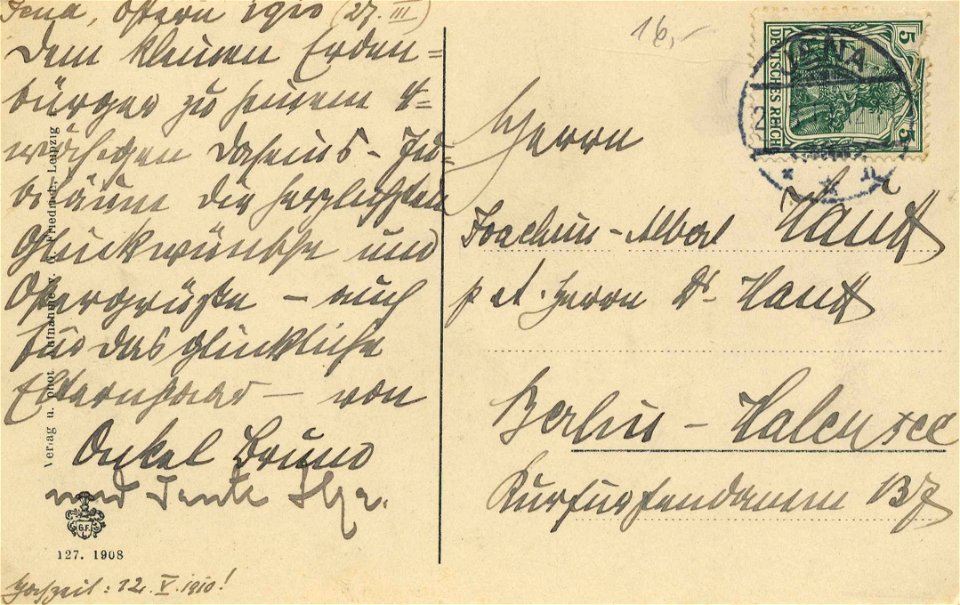 Jena, Ostern 1910 (27. III)
Dem kleinen Erden=
bürger zu seinem 4-
wöchigen Daseins-Ju-
biläum die herzlichsten
Glückwünsche und
Ostergrüße – auch
für das glückliche
Elternpaar – von
Onkel Bruno
und Tante Ilse.
Hochzeit: 12. V. 1910!
Verlag u. phot. Aufnahme v. Friedrich, Leipzig
G.F.
L.
127. 1908
16,-
DEUTSCHES REICH
5
5
JENA
Herrn
Joachim-Albert Hanff
p. ad. Herrn Dr. Hanff
Berlin – Halensee
Kurfürstendamm 137